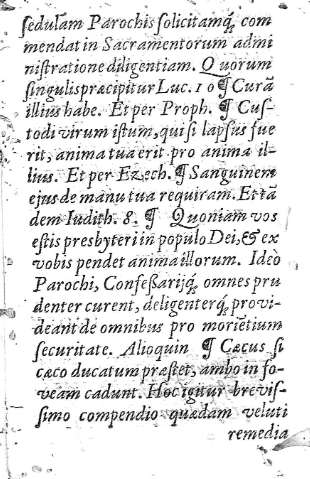 ſedulam Parochis ſolicitamq́; com
mendat in Sacramentorum admi
niſtratione diligentiam. Quorum
ſingulis præcipitur Luc. 10 ¶ Curã
illius habe. Et per Proph. ¶ Cuſ-
todi virum iſtum, qui ſi lapſus fue
rit, anima tua erit pro anima il-
lius. Et per Ezech. ¶ Sanguinem
ejus de manu tua requiram. Et tã
dem Iudith. 8. ¶ Quoniam vos
eſtis presbyteri in populo Dei, & ex
vobis pendet anima illorum. Ideò
Parochi, Confeßarijq́; omnes pru
denter curent, deligenterq́; provi-
deant de omnibus pro moriẽtium
ſecuritate. Alioquin ¶ Cæcus ſi
cæco ducatum præſtet, ambo in fo-
veam cadunt. Hoc igitur breviſ-
ſimo compendio quædam veluti
remedia